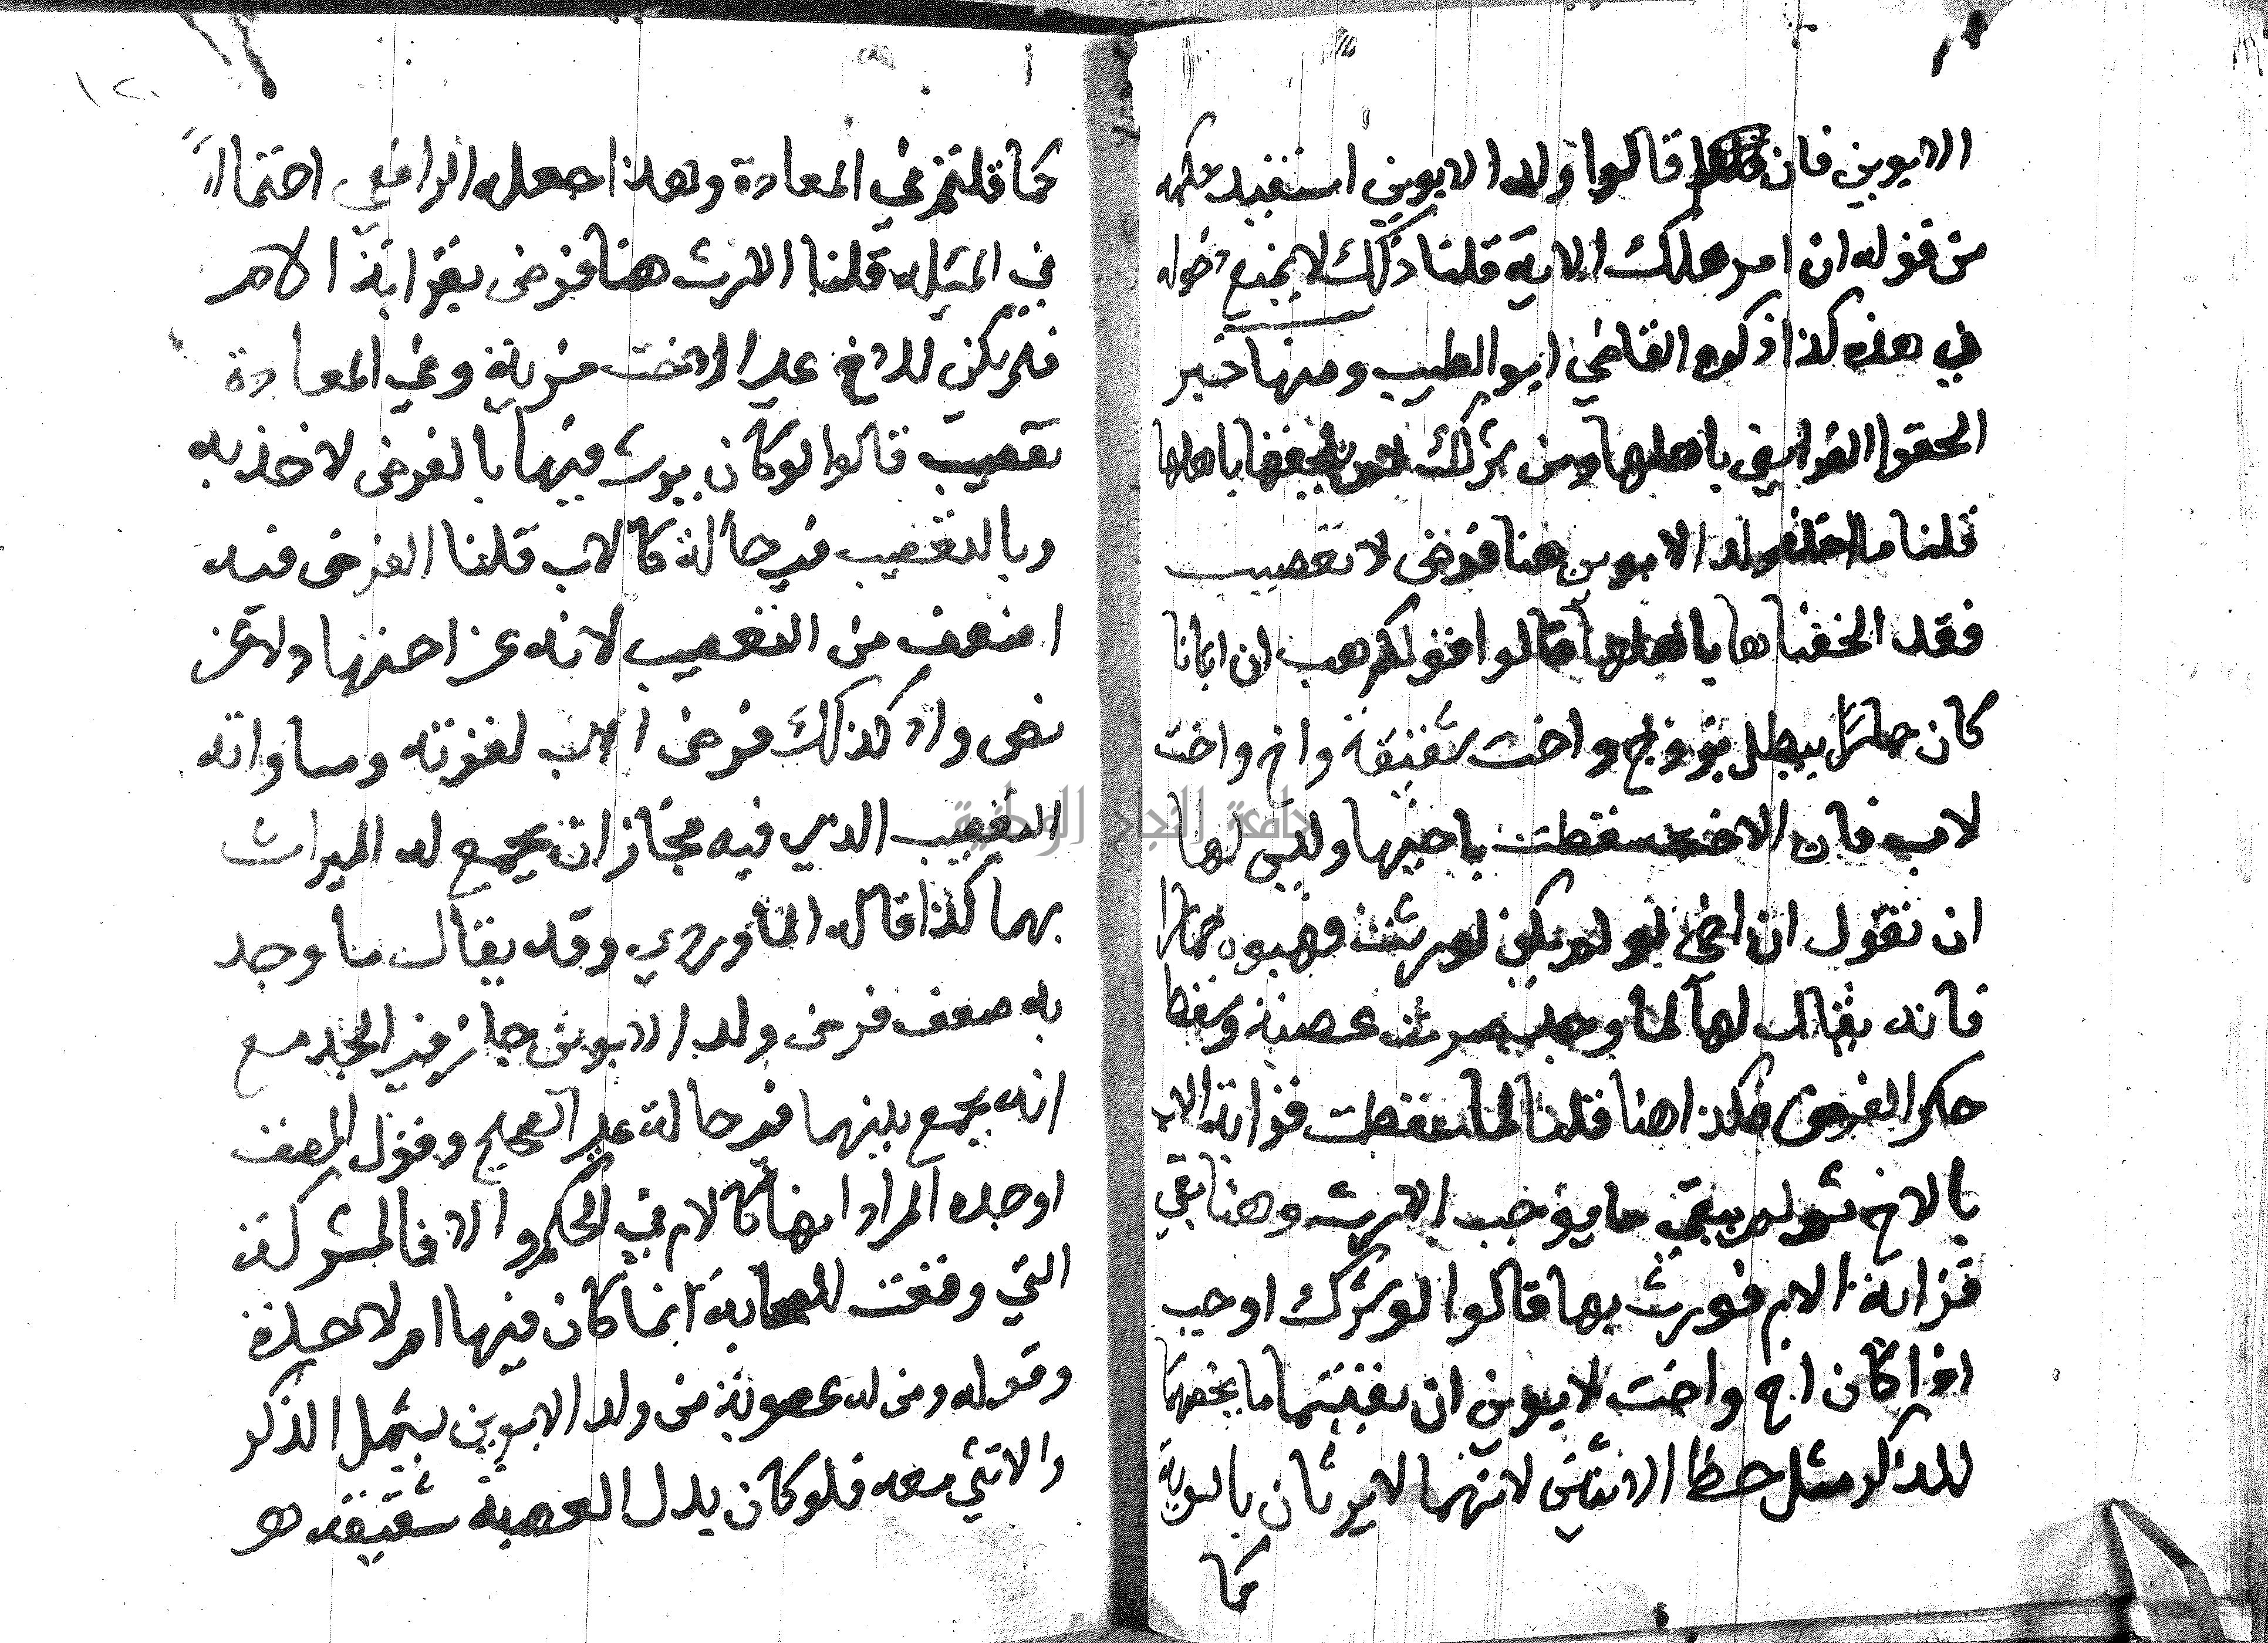 الابوين فان قالوا ولد الابوين استفيد حكمه
من قوله ان امرؤ هلك الاية قلنا ذلك لا يمنع دخوله
في هذه كذا ذكره القاضي ابو الطيب ومنها خبر
الحقوا الفرايض باهلها ومن شرك لم يلحقها باهلها
قلنا ما اخذه ولد الابوين هنا فرض لا تعصيب
فقد الحقناها باهلها قالوا قولكم هب ان ابانا
كان حمارًا يبطل بزوج واخت شقيقة واخ واخت
لاب فان الاخت سقطت باخيها وليس لها
ان تقول ان اخي لو لم يكن لورثت فهبوه حمارا
فانه يقال لها لما وجد صرت عصبة وسقط
حكم الفرض فكذا هنا قلنا لما سقطت قرابة الاب
بالاخ ثم لم يبق ما يوجب الارث وهنا بقي
قرابة الام فورث بها قالوا لو شرك اوجب
اذا كان اخ واخت لابوين ان يقتسما ما يخصهما
للذكر مثل حظ الانثيين لانهما لا يرثان بالسوية
كما
١٢٠
كما قلتم في المعادة وهذا جعله الرافعي احتمالاً
في المسئلة قلنا الارث هنا فرض بقرابة الام
فلم يكن للاخ على الاخت مزية وفي المعادة
تعصيب قالوا لو كان يرث فيها بالفرض لاخذ به
وبالتعصيب في حالة كالاب قلنا الفرض فيه
اضعف من التعصيب لانه عن احدها ولا عن
نص ولا كذلك فرض الاب لقوته ومساواته
التعصيب الذي فيه فجاز ان يجمع له الميراث
بهما كذا قاله الماوردي وقد يقال ما وجد
به ضعف فرض ولد الابوين جاز في الجد مع
انه يجمع بينهما في حالة على الصحيح وقول المصنف
اوجده المراد انها كالام في الحكم والا فالمشركة
التي وقعت للصحابة انما كان فيها ام لا جدة
وقوله ومن له عصوبة من ولد الابوين يشمل الذكر
والانثى معه فلو كان بدل العصبة شقيقة هو
جامعة النجاح الوطنية